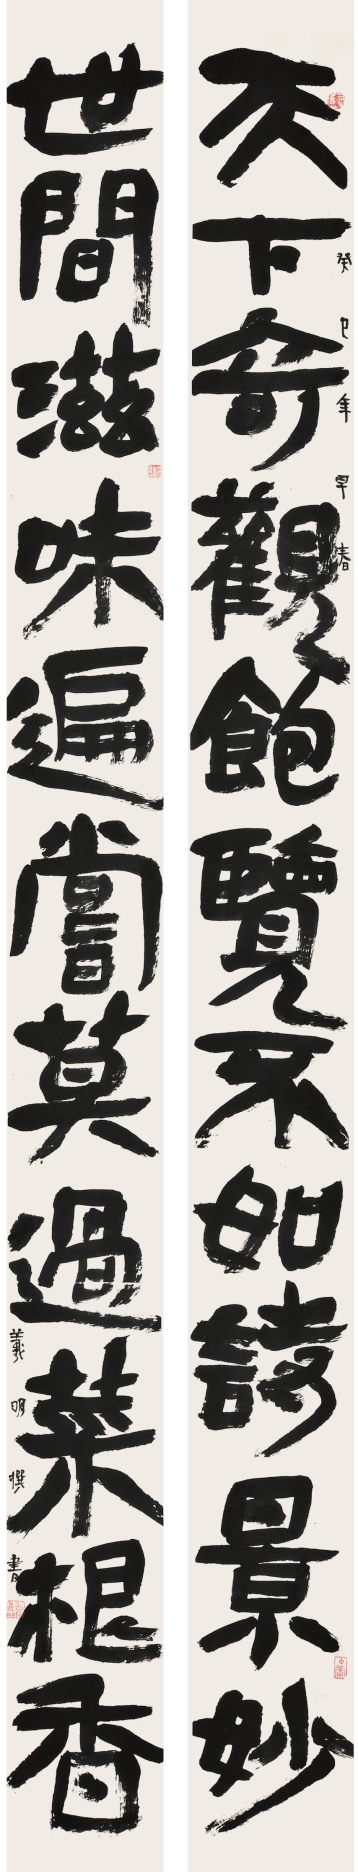 天下奇觀飽覽不如詩景妙
癸巳年早春
世間滋味遍嘗莫過菜根香
羲明撰書